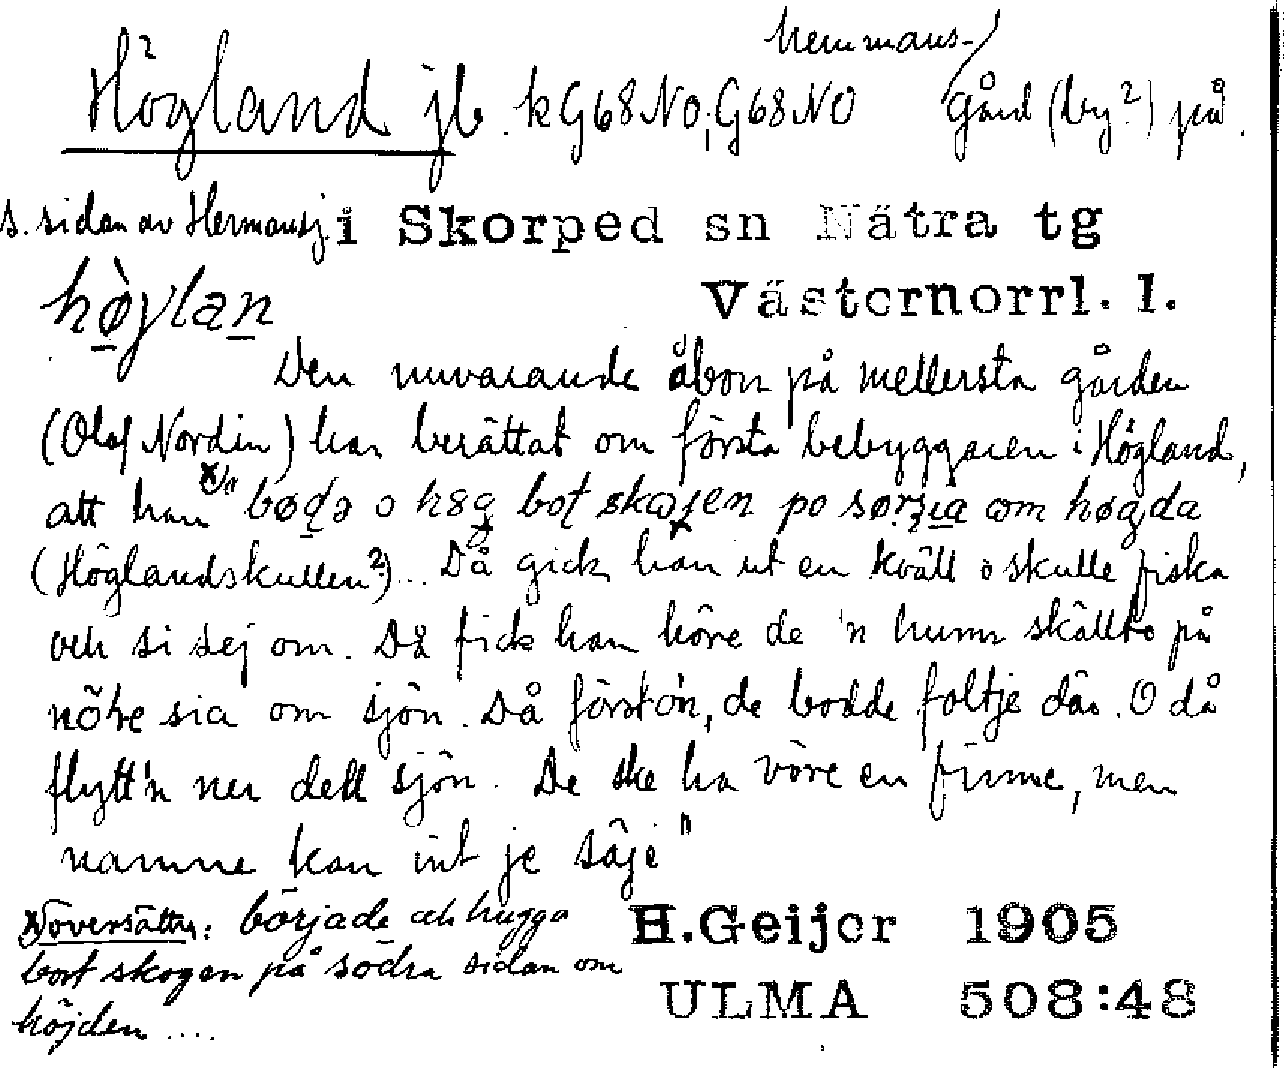 hemmans-
Högland jb. k G68 NO; G68 NO Gård (by?) på
s. sidan av Hermansj i Skorped sn Nätra tg
hø̀ylan Västernorrl. l.
Den nuvarande åbon på mellersta gården
(Olof Nordin) har berättat om första bebyggaren i Högland,
att han x) " bø̀ḍə o hag boṭ skoɟen po sørʂia om høgda
(Höglandskullen?)... Då gick han ut en kväll o skulle fiska
och si sej om. Då fick han höre de 'n hunn skällto på
nöłre sia om sjön. Då förstón, de bodde foltje där. O då
flytt'n ner dell sjön. De ske ha vöre en finne, men
namne kan int je säje"
x) översättn.: började och hugga H.Geijer 1905
bort skogen på södra sidan om
höjden .... ULMA 508:48